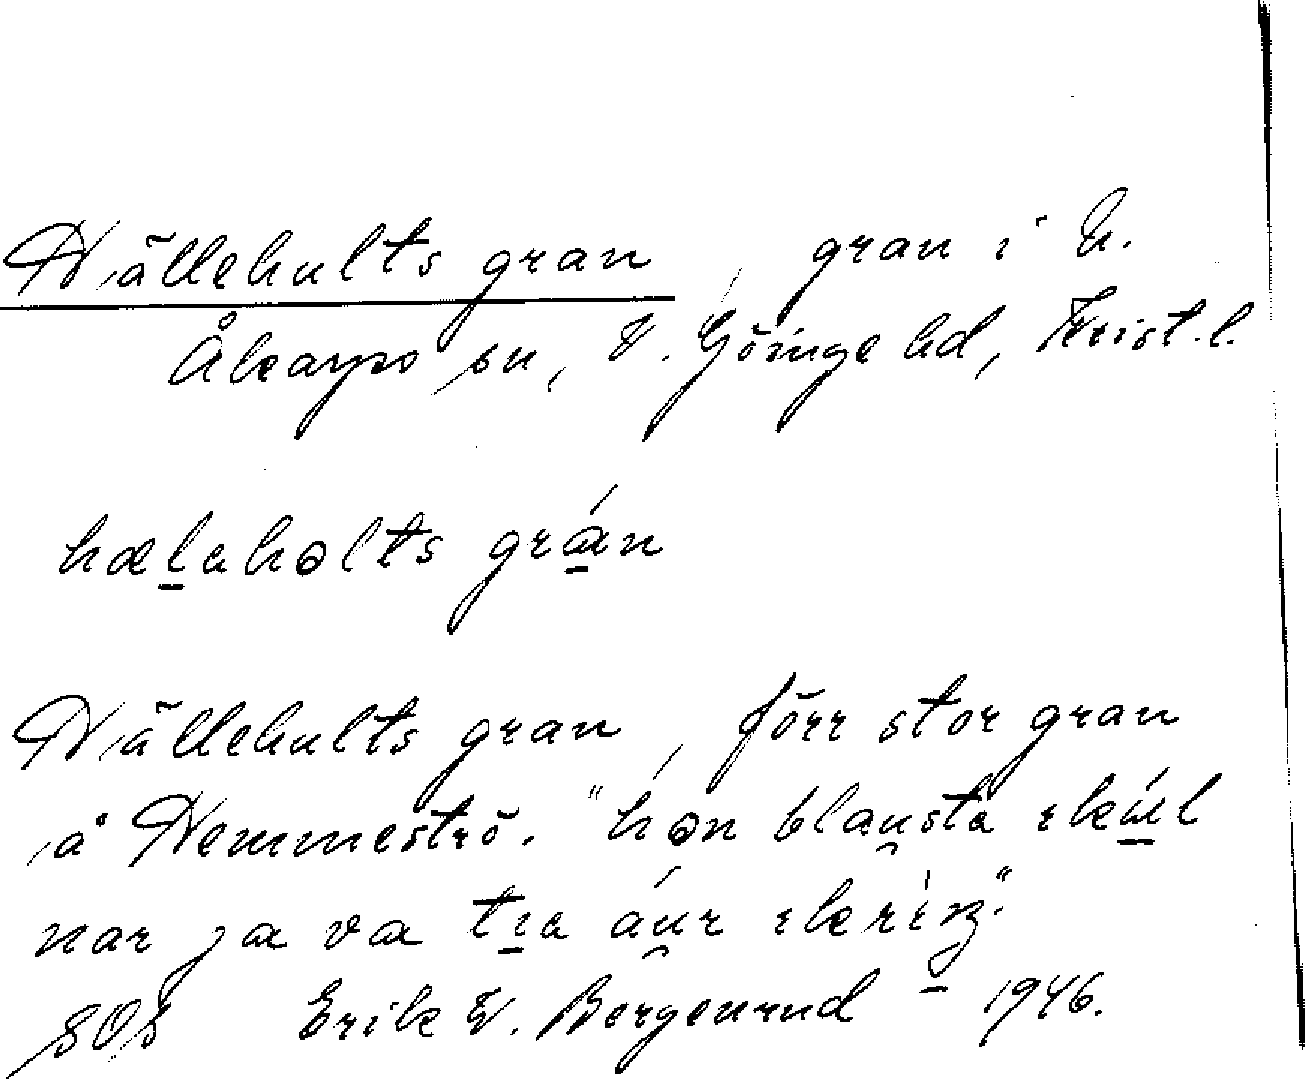 Hällehults gran, gran i N.
Åkarps sn, V. Göinge hd, Krist.l.
hæləhɷlts grá̱n
Hällehults gran, förr stor gran
å Hemmeströ. "hon blau̯sta
nar ja va au̯r
SOS Erik W. Bergenrud 1946.